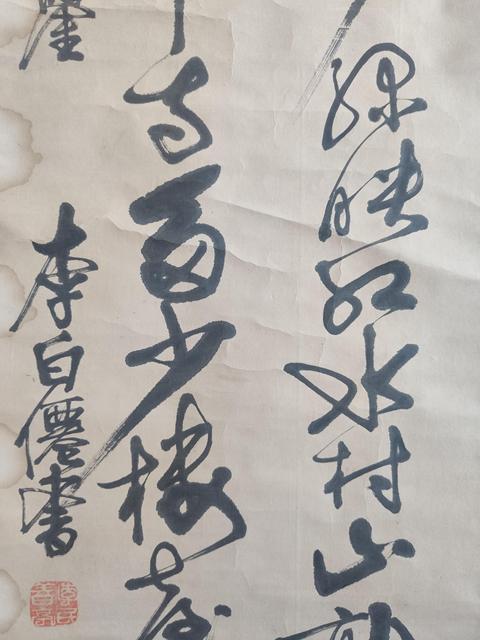 綠映紅水村山
寺多少樓臺
李白僊書